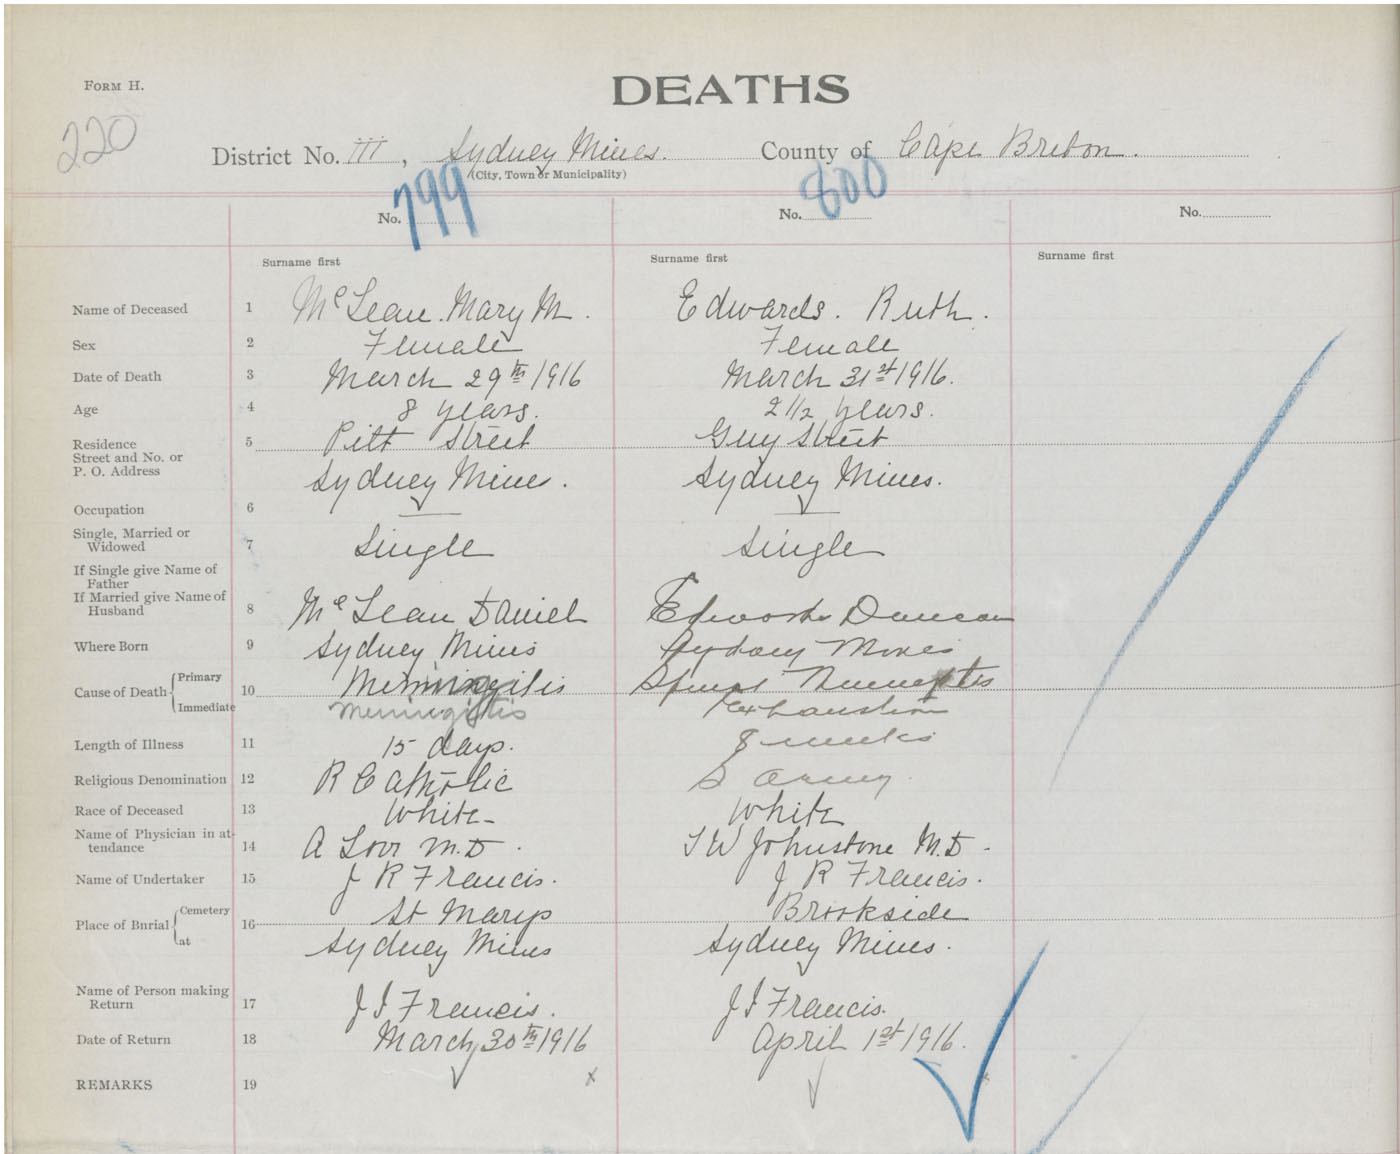 FORM H.
DEATHS
220
District No. III, Sydney Mines. County of Cape Breton.
(City, Town or Municipality)
No. 799 No. 800 No.
Surname first Surname first Surname first
Name of Deceased 1 McLean. Mary M. Edwards. Ruth.
Sex 2 Female Female
Date of Death 3 March 29th 1916 March 31st 1916.
Age 4 8 years. 2 1/2 years.
Residence 5 Pitt Street Guy Street
Street and No. or
P. O. Address Sydney Mines. Sydney Mines.
Occupation 6 — —
Single, Married or
Widowed 7 Single Single
If Single give Name of
Father
If Married give Name of
Husband 8 McLean Daniel Edwards Duncan
Where Born 9 Sydney Mines Sydney Mines
Cause of Death { Primary 10 Meningitis Spinal
Immediate Meningitis Exhaustion
Length of Illness 11 15 days. 8 weeks
Religious Denomination 12 R Catholic S Army
Race of Deceased 13 White White
Name of Physician in at-
tendance 14 A M.D. T W Johnstone M.D.
Name of Undertaker 15 J R Francis. J R Francis.
Place of Bnrial { Cemetery 16 St Marys Brookside
at Sydney Mines Sydney Mines.
Name of Person making
Return 17 J J Francis. J J Francis.
Date of Return 18 March 30th 1916 April 1st 1916.
REMARKS 19 x x